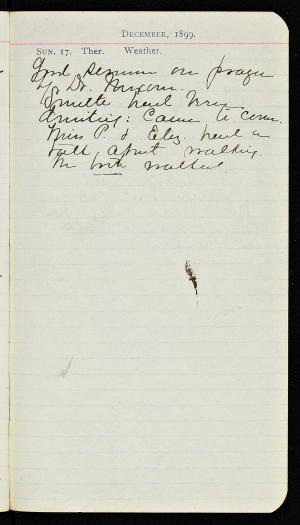 December, 1899.
Sun. 17. Ther. Weather.
Good sermon on prayer
by Dr.
had
Came to com.
Miss P. & Eliz. had a
talk about walking.
We both walked.